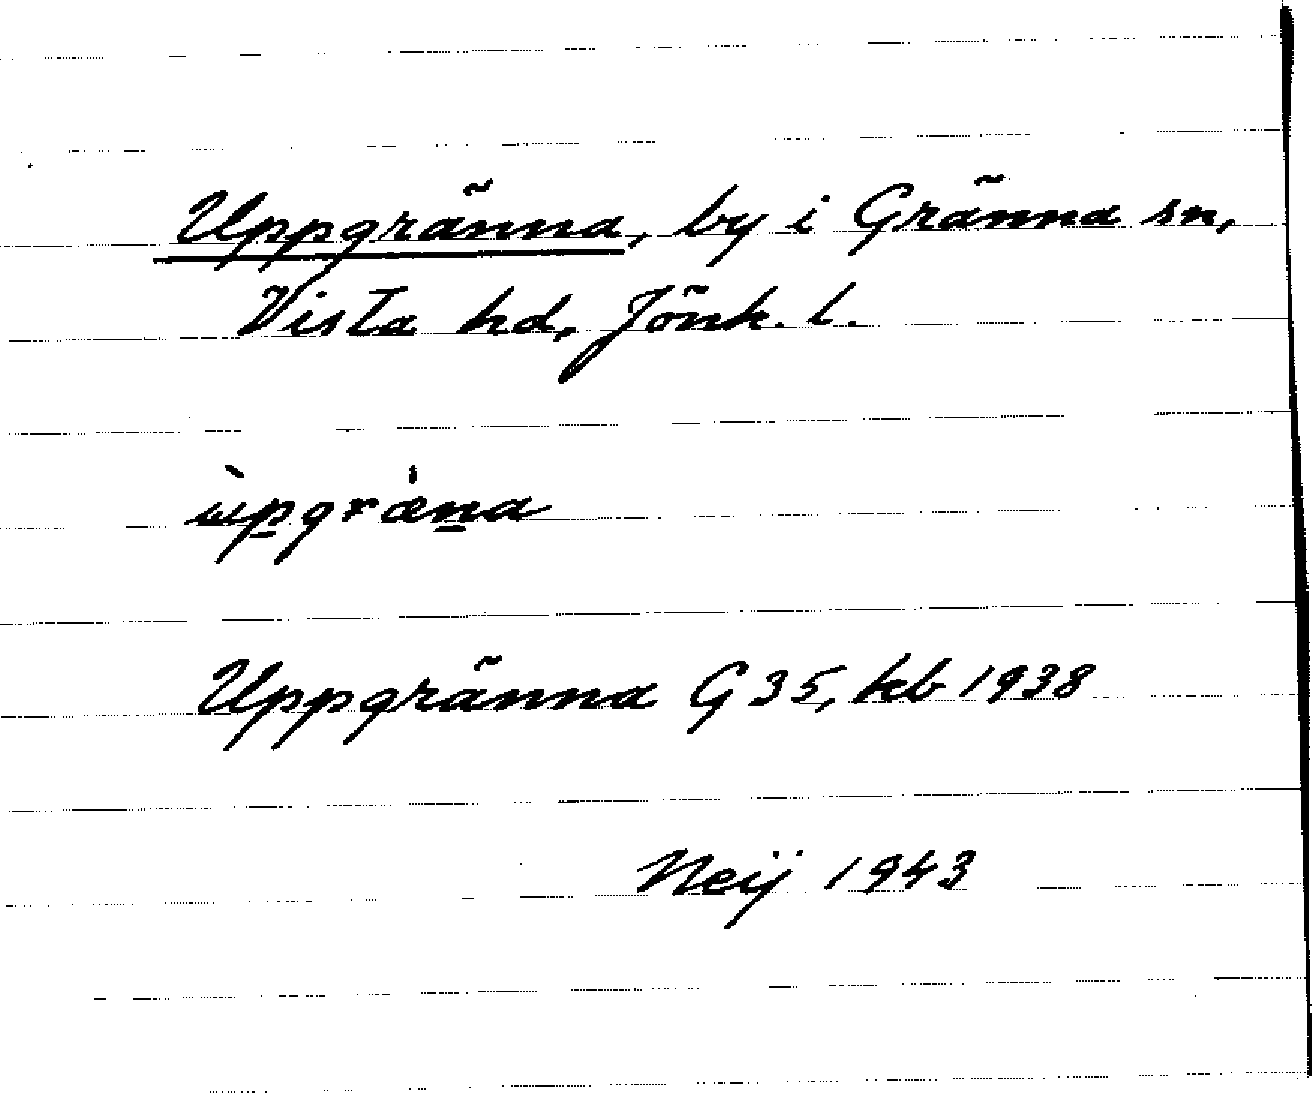 Uppgränna, by i Gränna sn,
Vista hd, Jönk. l.
ùpgræ̍na
Uppgränna G 35, kb 1938
Neij 1943